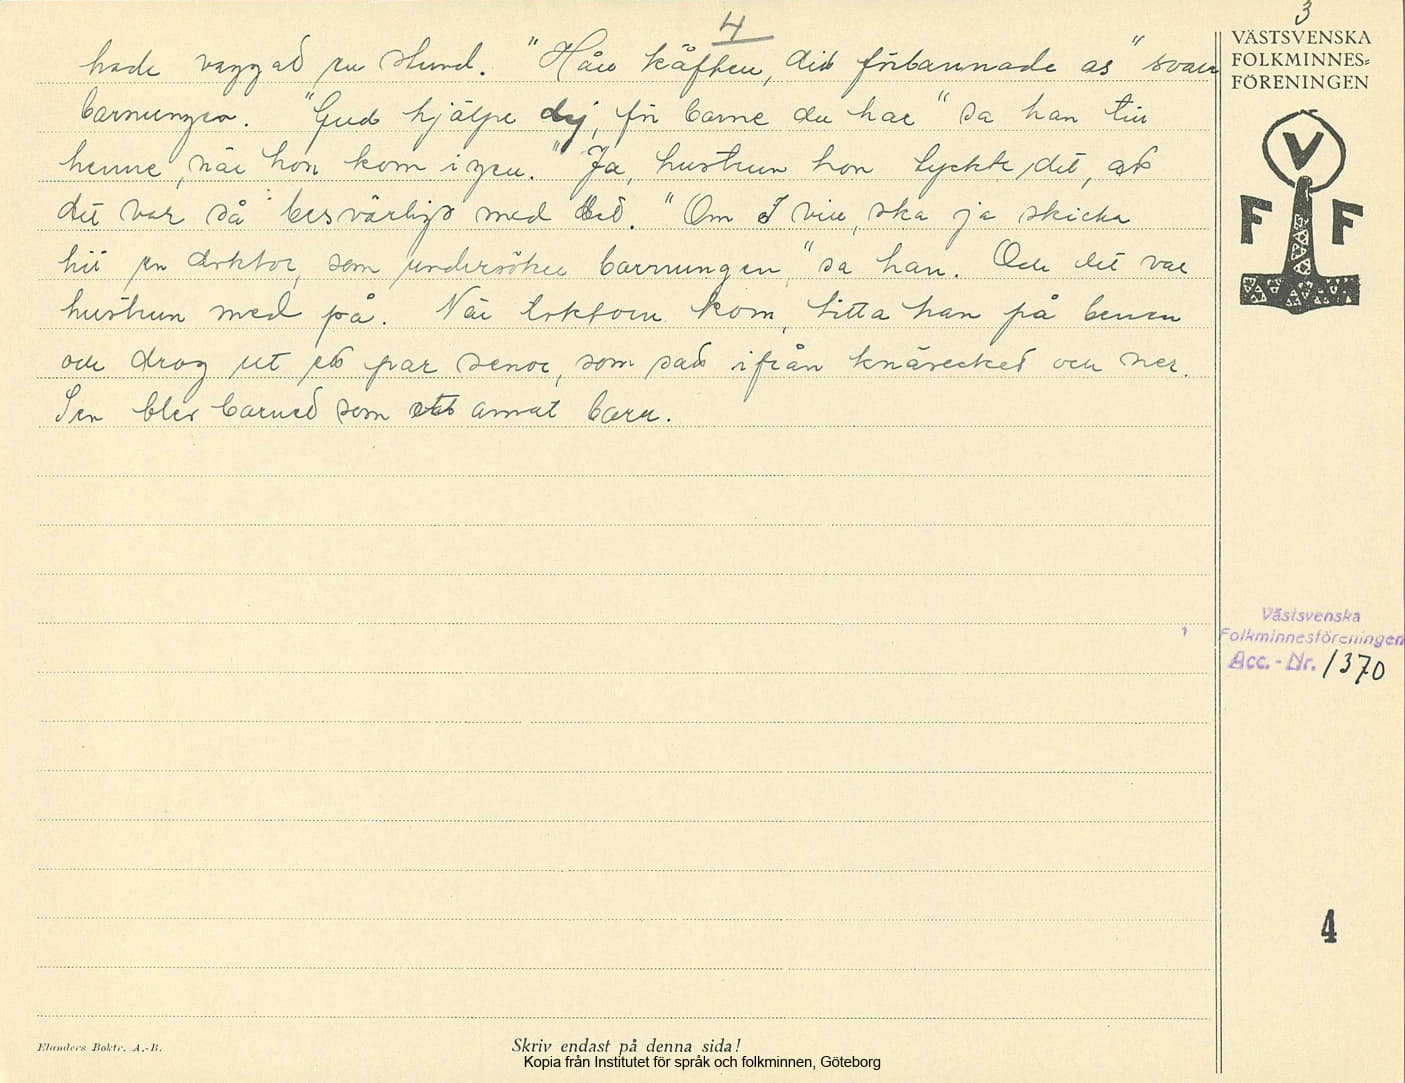 4
3
hade vaggad en stund. "Håll käften, ditt förbannade as" svara
barnungen. "Gud hjälpe dej, för barne du har" sa han till
henne, när hon kom igen. "Ja, hustrun hon tyckte, det, att
det var så besvärligt med ded. "Om I vill, ska ja skicka
hit en doktor, som undersöker barnungen," sa han. Och det var
hustrun med på. När doktorn kom, titta han på benen
och drog ut ett par senor, som satt ifrån knävecket och ner.
Sen blev barned som ett annat barn.
VÄSTSVENSKA
FOLKMINNES=
FÖRENINGEN
V
F F
Västsvenska
Folkminnesföreningen
Acc.-Nr. 1370
4
Elanders Boktr. A.-B.
Skriv endast på denna sida!
Kopia från Institutet för språk och folkminnen, Göteborg